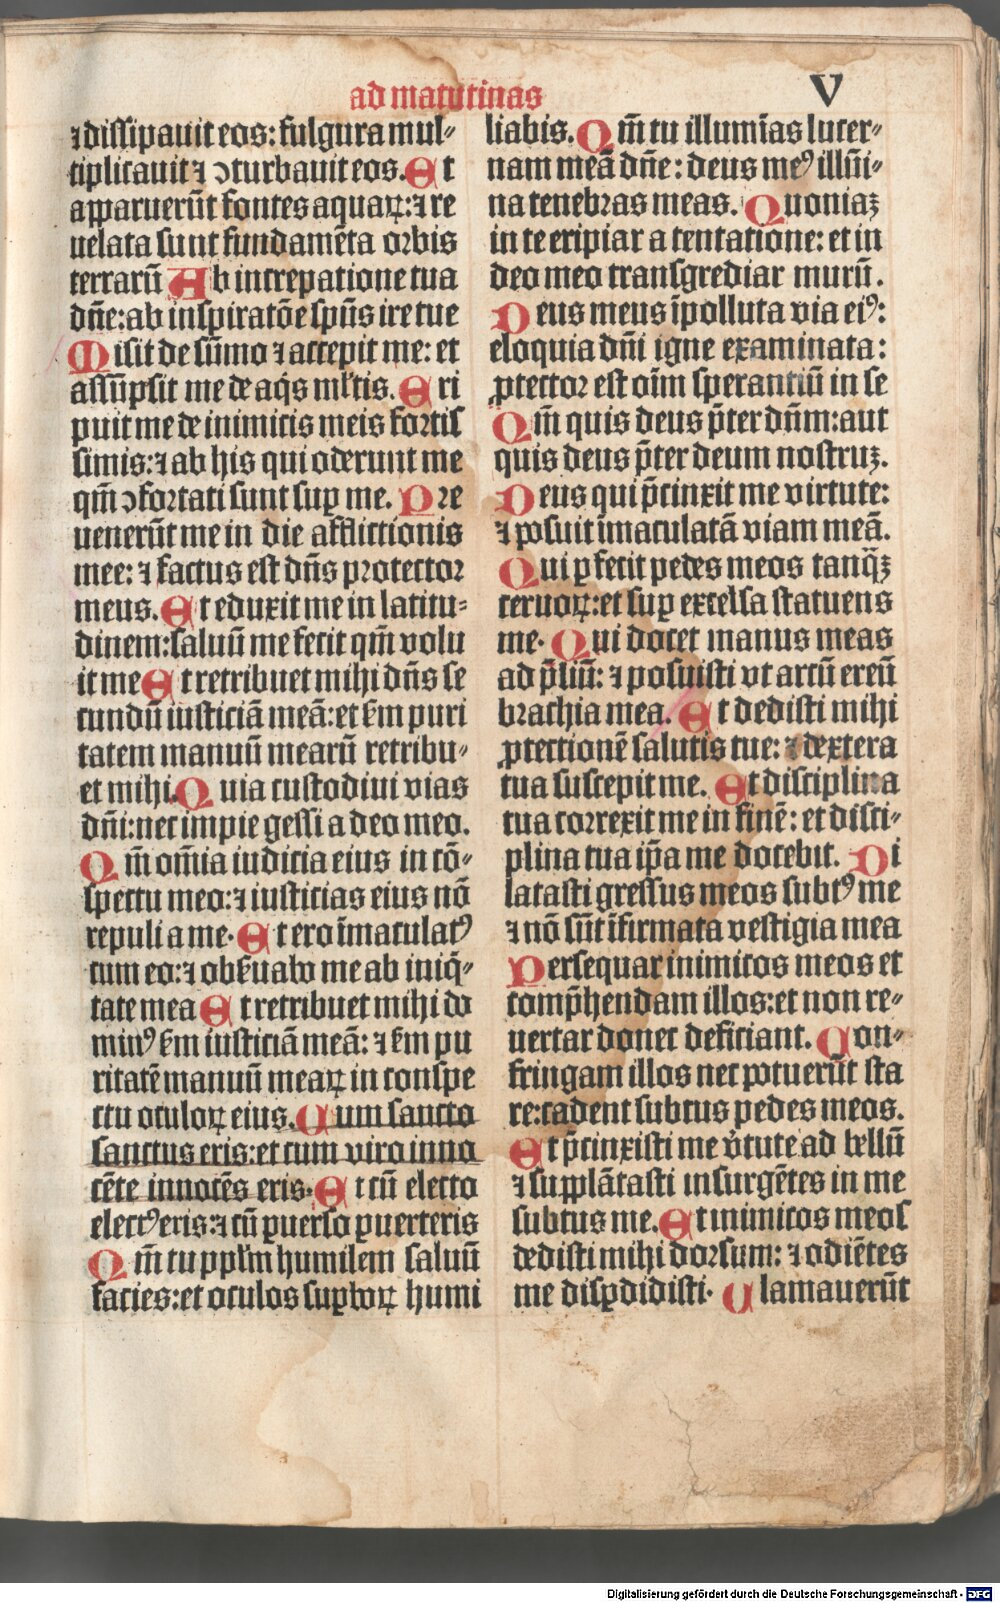 ad matutinas
V
⁊ dissipauit eos: fulgura mul⸗
tiplicauit ⁊ ↄturbauit eos. Et
apparuerūt fontes aquaꝝ: ⁊ re
uelata sunt fundamēta orbis
terrarū Ab increpatione tua
dn̄e: ab inspiratōe spūs ire tue
Misit de sūmo ⁊ accepit me: et
assūpsit me de aq̇s ml̓tis. Eri
puit me de inimicis meis fortis
simis: ⁊ ab his qui oderunt me
qm̄ ↄfortati sunt suꝑ me. Pre
uenerūt me in die afflictionis
mee: ⁊ factus est dn̄s protector
meus. Et eduxit me in latitu⸗
dinem: saluū me fecit qm̄ volu
it me Et retribuet mihi dn̄s se
cundū iusticiā meā: et ẜm puri
tatem manuū mearū retribu⸗
et mihi. Quia custodiui vias
dn̄i: nec impie gessi a deo meo.
Qm̄ om̄ia iudicia eius in cō⸗
spectu meo: ⁊ iusticias eius nō
repuli a me. Et ero īmaculatꝰ
cum eo: ⁊ obẜuabo me ab iniq̇⸗
tate mea Et retribuet mihi do
minꝰ ẜm iusticiā meā: ⁊ ẜm pu
ritatē manuū meaꝝ in conspe
ctu oculoꝝ eius. Cum sancto
sanctus eris: et cum viro inno
cēte innocēs eris. Et cū electo
electꝰ eris: ⁊ cū ꝑuerso ꝑuerteris
Qm̄ tu ppl̓m humilem saluū
facies: et oculos suꝑboꝝ humi
liabis. Qm̄ tu illumīas lucer⸗
nam meā dn̄e: deus meꝰ illūi⸗
na tenebras meas. Quoniaꝫ
in te eripiar a tentatione: et in
deo meo transgrediar murū.
Deus meus īpolluta via eiꝰ:
eloquia dn̄i igne examinata:
ꝓtector est oīm sperantiū in se
Qm̄ quis deus p̄ter dn̄m: aut
quis deus p̄ter deum nostruꝫ.
Deus qui p̄cinxit me virtute:
⁊ posuit īmaculatā viam meā.
Qui ꝑfecit pedes meos tanq̄ꝫ
ceruoꝝ: et suꝑ excelsa statuens
me. Qui docet manus meas
ad p̄liū: ⁊ posuisti vt arcū ereū
brachia mea. Et dedisti mihi
ꝓtectionē salutis tue: ⁊ dextera
tua suscepit me. Et disciplina
tua correxit me in finē: et disci⸗
plina tua ip̄a me docebit. Di
latasti gressus meos subtꝰ me
⁊ nō sūt īfirmata vestigia mea
Persequar inimicos meos et
comp̄hendam illos: et non re⸗
uertar donec deficiant. Con⸗
fringam illos nec potuerūt sta
re: cadent subtus pedes meos.
Et p̄cinxisti me v̓tute ad bellū
⁊ supplātasti insurgētes in me
subtus me. Et inimicos meos
dedisti mihi dorsum: ⁊ odiētes
me disꝑdidisti. Clamauerūt
Digitalisierung gefördert durch die Deutsche Forschungsgemeinschaft - DFG